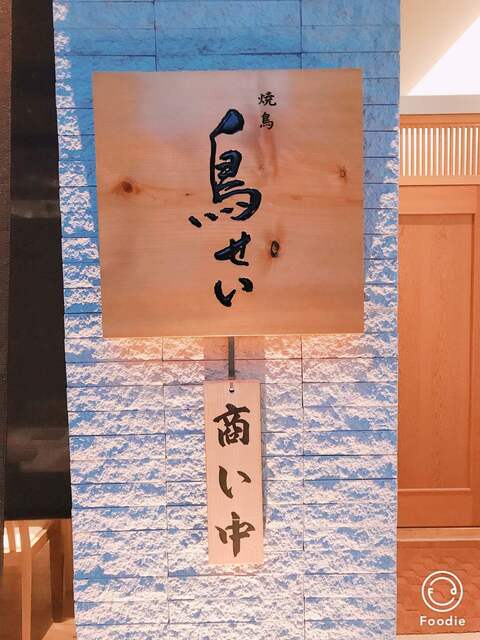 焼鳥
鳥せい
商い中
Foodie